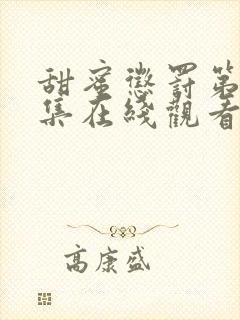 甜蜜懲罰第
集在綫觀看
高康盛